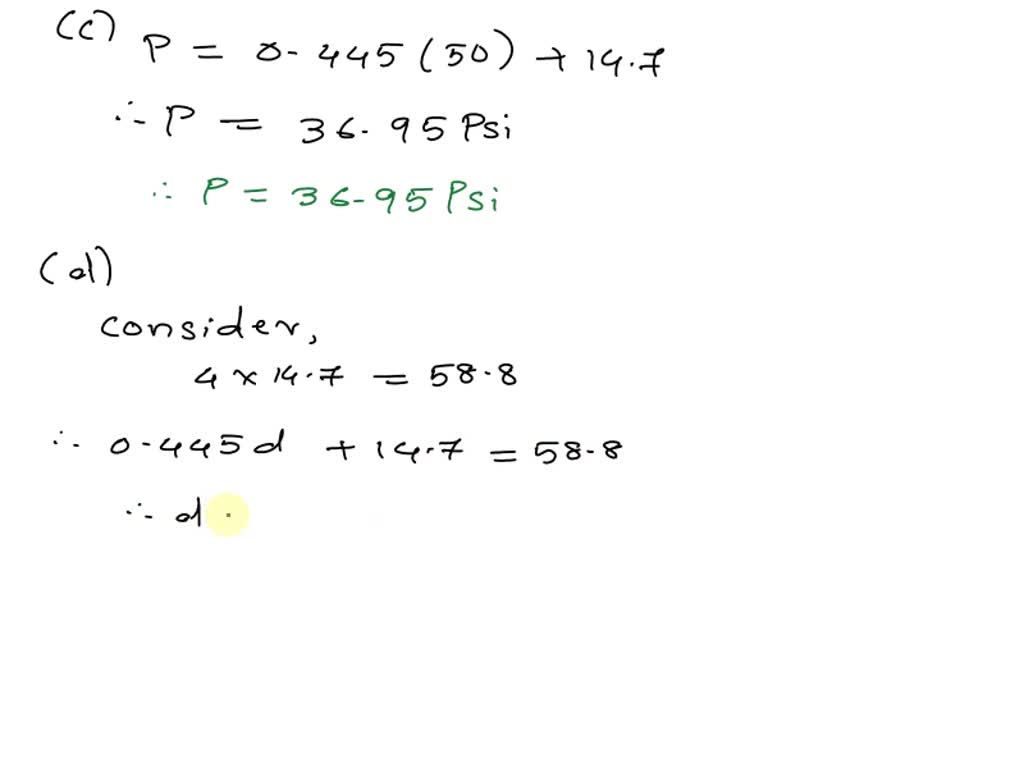 (c) P = 0.445 (50) + 14.7
∴ P = 36.95 Psi
∴ P = 36.95 Psi
(d)
consider,
4 × 14.7 = 58.8
∴ 0.445d + 14.7 = 58.8
∴ d